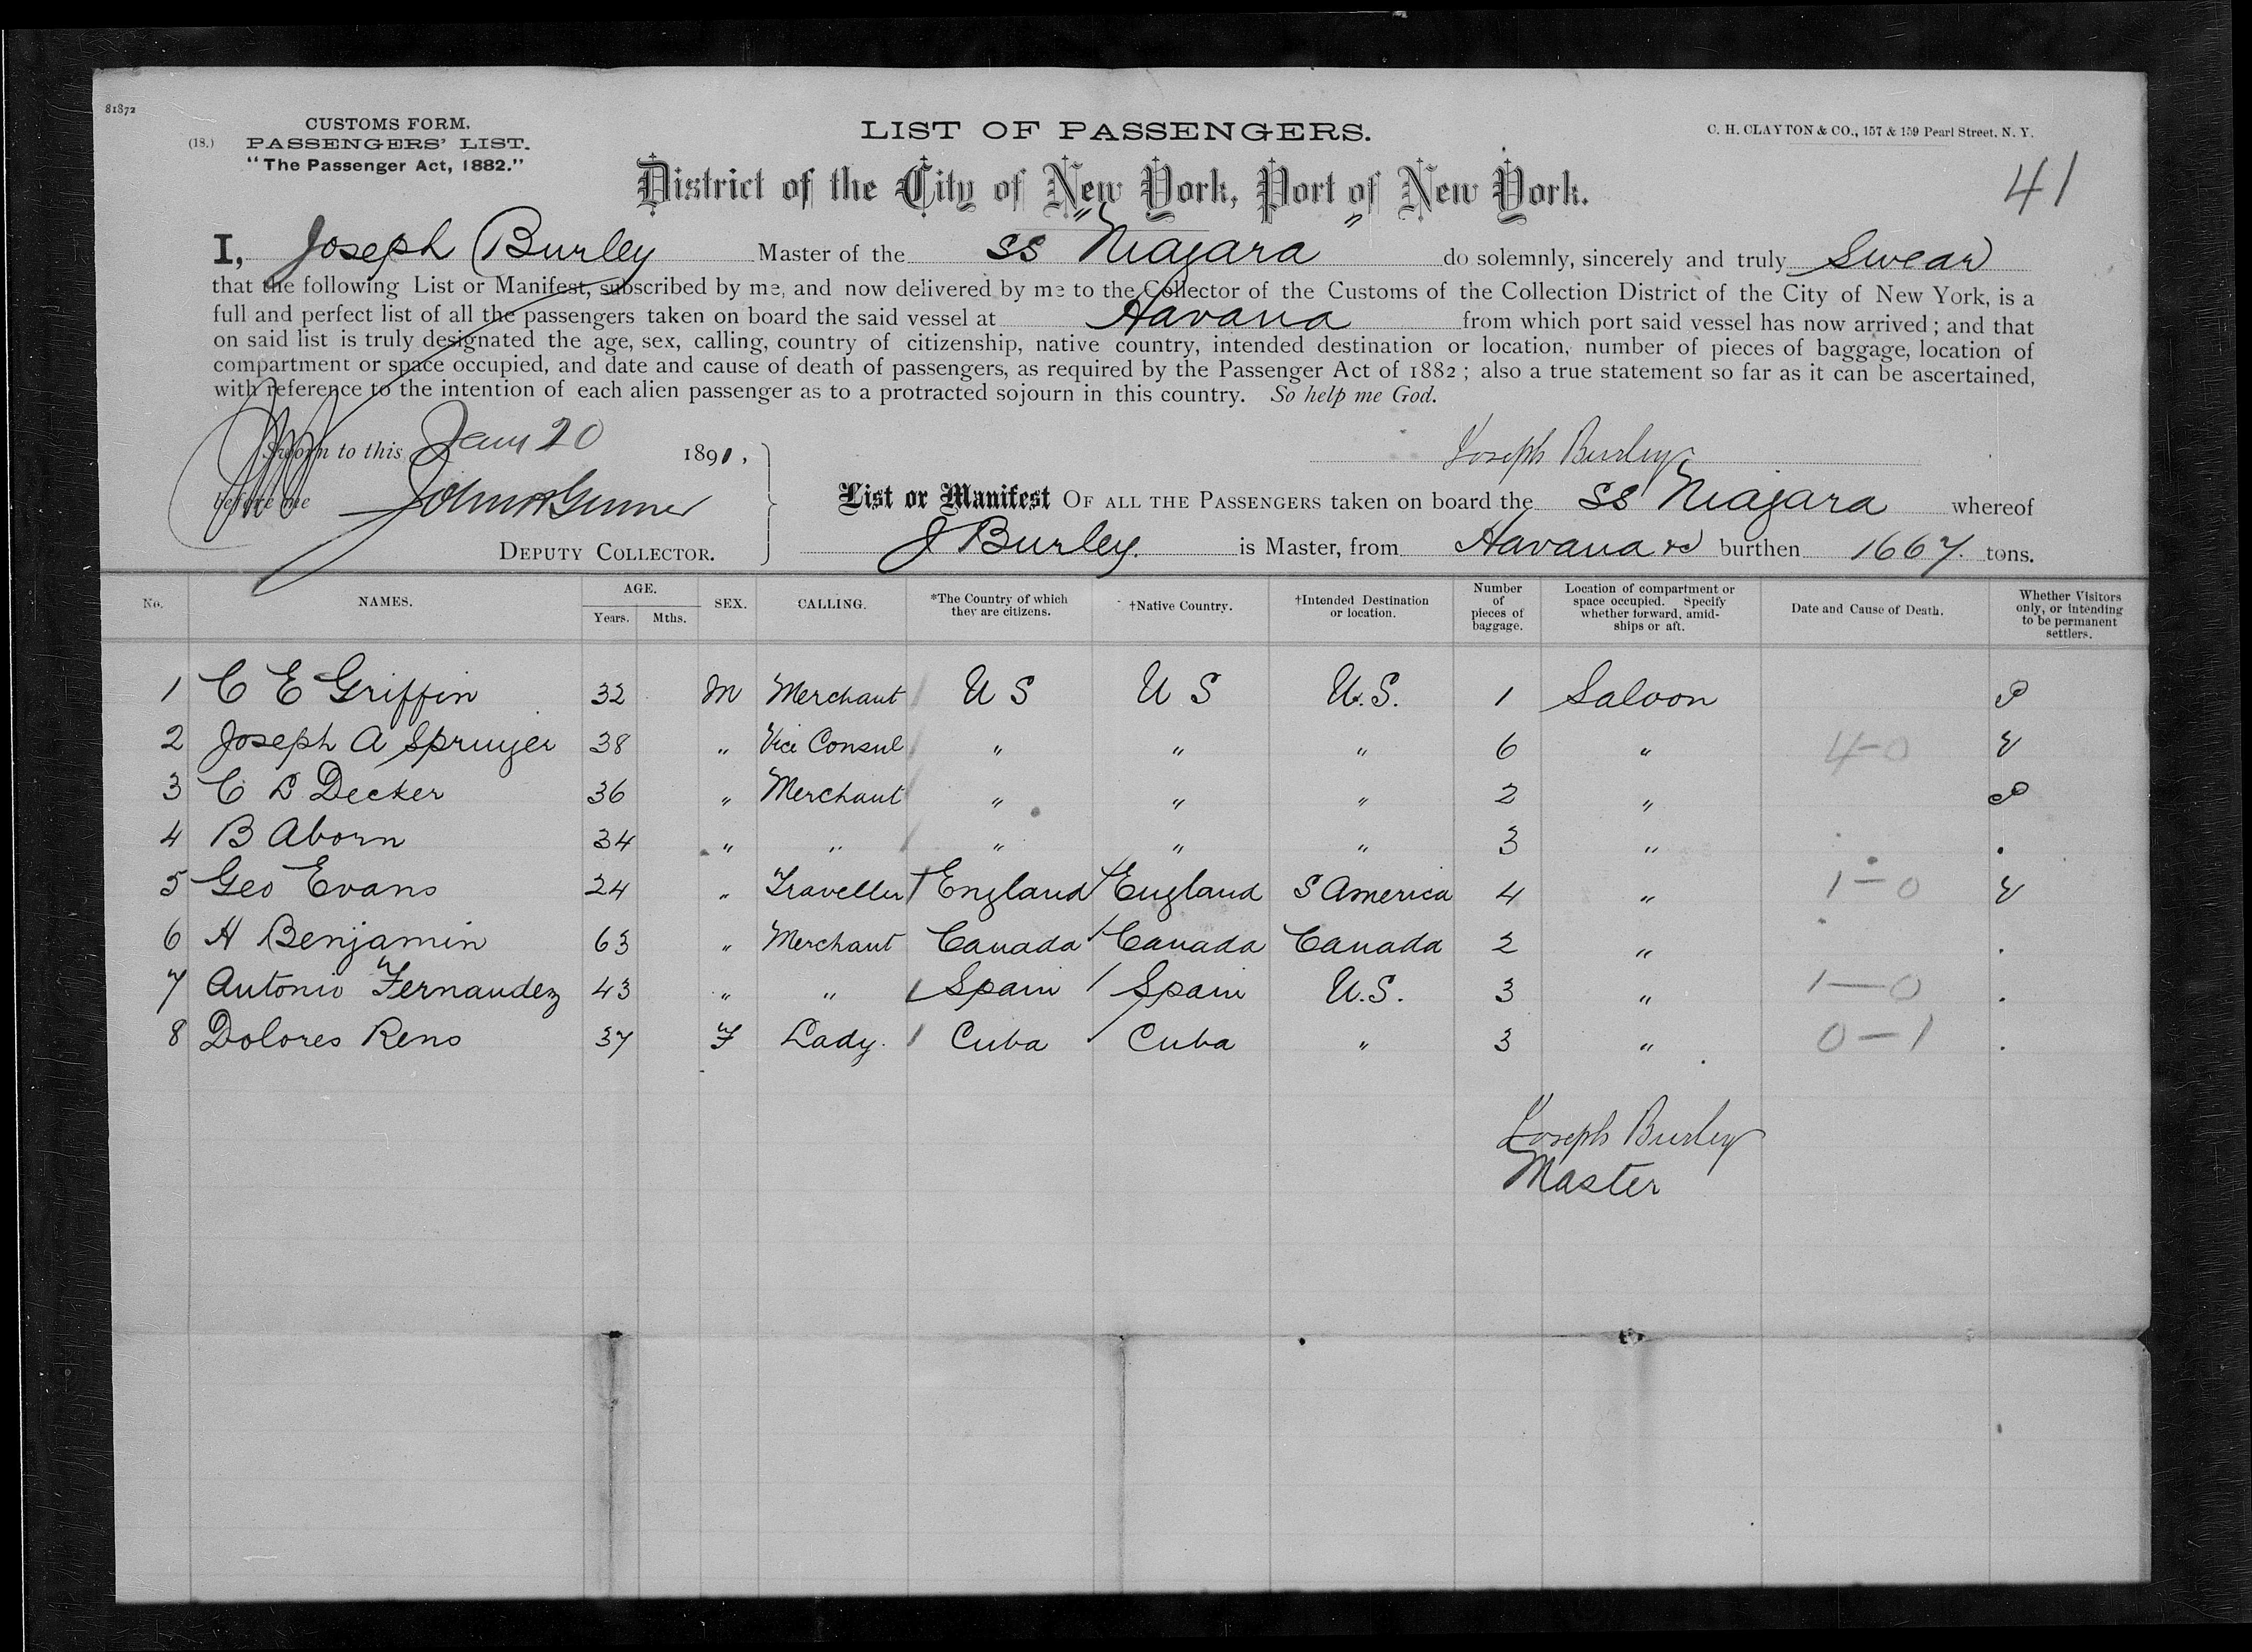 81872
CUSTOMS FORM.
(18.) PASSENGERS' LIST.
"The Passenger Act, 1882."
LIST OF PASSENGERS.
C. H. CLAYTON & CO., 157 & 159 Pearl Street, N. Y.
District of the City of New York, Port of New York.
41
I, Joseph Burley Master of the SS "Niagara" do solemnly, sincerely and truly Swear
that the following List or Manifest, subscribed by me, and now delivered by me to the Collector of the Customs of the Collection District of the City of New York, is a
full and perfect list of all the passengers taken on board the said vessel at Havana from which port said vessel has now arrived; and that
on said list is truly designated the age, sex, calling, country of citizenship, native country, intended destination or location, number of pieces of baggage, location of
compartment or space occupied, and date and cause of death of passengers, as required by the Passenger Act of 1882; also a true statement so far as it can be ascertained,
with reference to the intention of each alien passenger as to a protracted sojourn in this country. So help me God.
Sworn to this Jany 20 1891,
Joseph Burley
before me
DEPUTY COLLECTOR.
List or Manifest OF ALL THE PASSENGERS taken on board the SS Niagara whereof
J Burley. is Master, from Havana burthen 1667 tons.
No. NAMES. AGE. Years. Mths. SEX. CALLING. *The Country of which they are citizens. †Native Country. †Intended Destination or location. Number of pieces of baggage. Location of compartment or space occupied. Specify whether forward, amidships or aft. Date and Cause of Death. Whether Visitors only, or intending to be permanent settlers.
1 C E Griffin 32 M Merchant U S U S U.S. 1 Saloon
2 Joseph A Spruyer 38 " Vice Consul " " " 6 " 4-0
3 C D Decker 36 " Merchant " " " 2 "
4 B Aborn 34 " " " " " 3 "
5 Geo Evans 24 " Traveller England England S America 4 " 1-0
6 H Benjamin 63 " Merchant Canada Canada Canada 2 "
7 Antonio Fernandez 43 " " Spain Spain U.S. 3 " 1-0
8 Dolores Reno 37 F Lady. Cuba Cuba " 3 " 0-1
Joseph Burley
Master